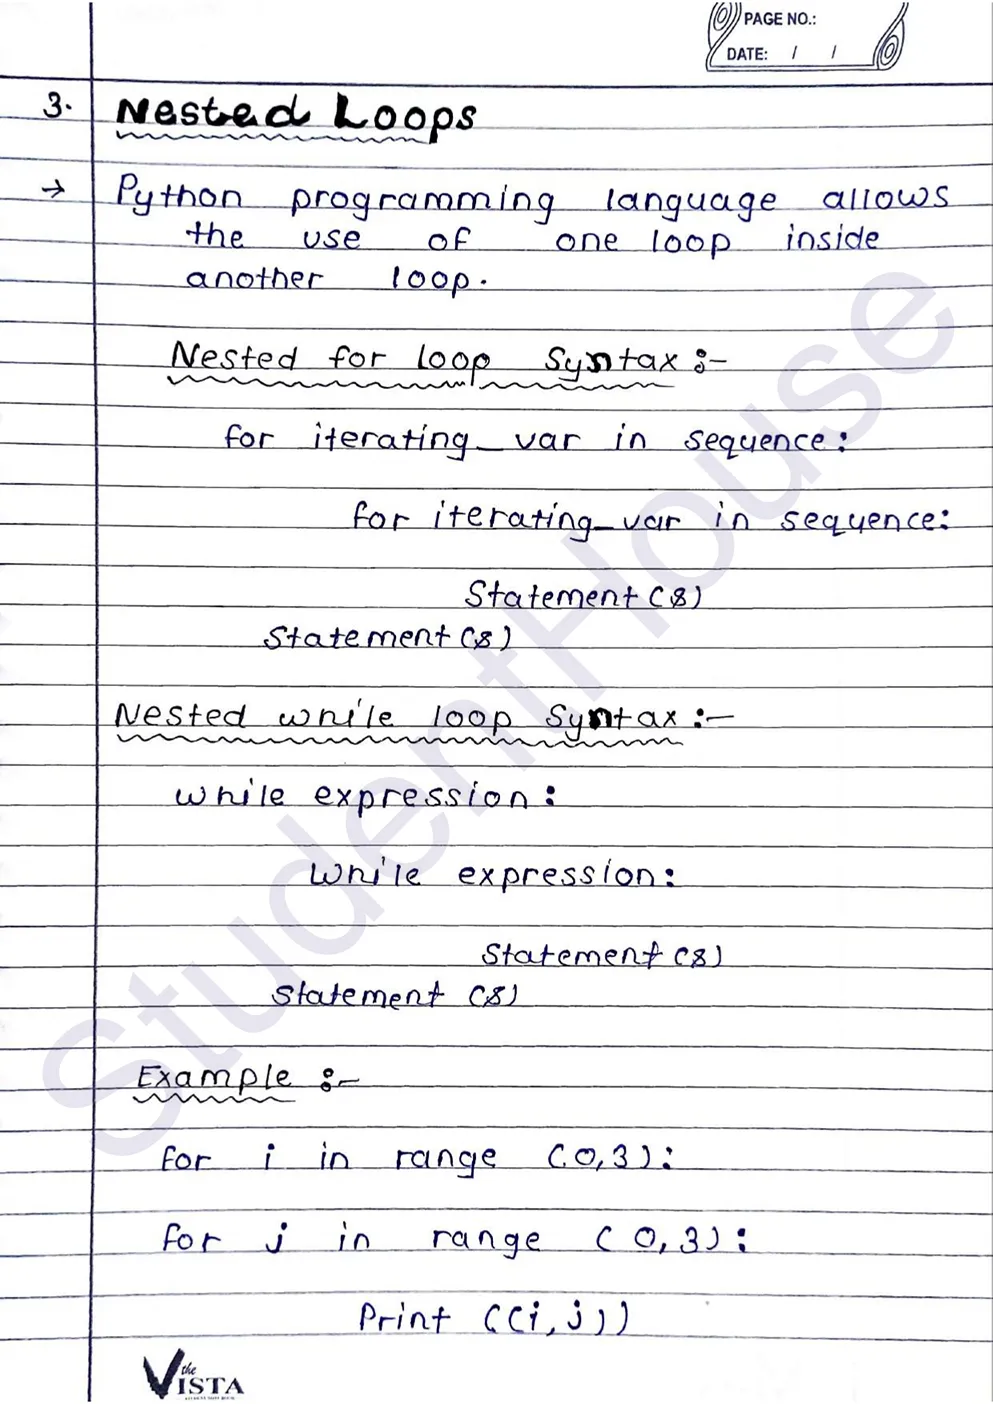 PAGE NO.:
DATE: / /
3. Nested Loops
→ Python programming language allows
the use of one loop inside
another loop.
Nested for loop Syntax :-
for iterating_var in sequence:
for iterating_var in sequence:
Statement(s)
Statement(s)
Nested while loop Syntax :-
while expression:
while expression:
Statement(s)
Statement (s)
Example :-
for i in range (0,3):
for j in range (0,3):
Print ((i,j))
the VISTA
StudentHouse